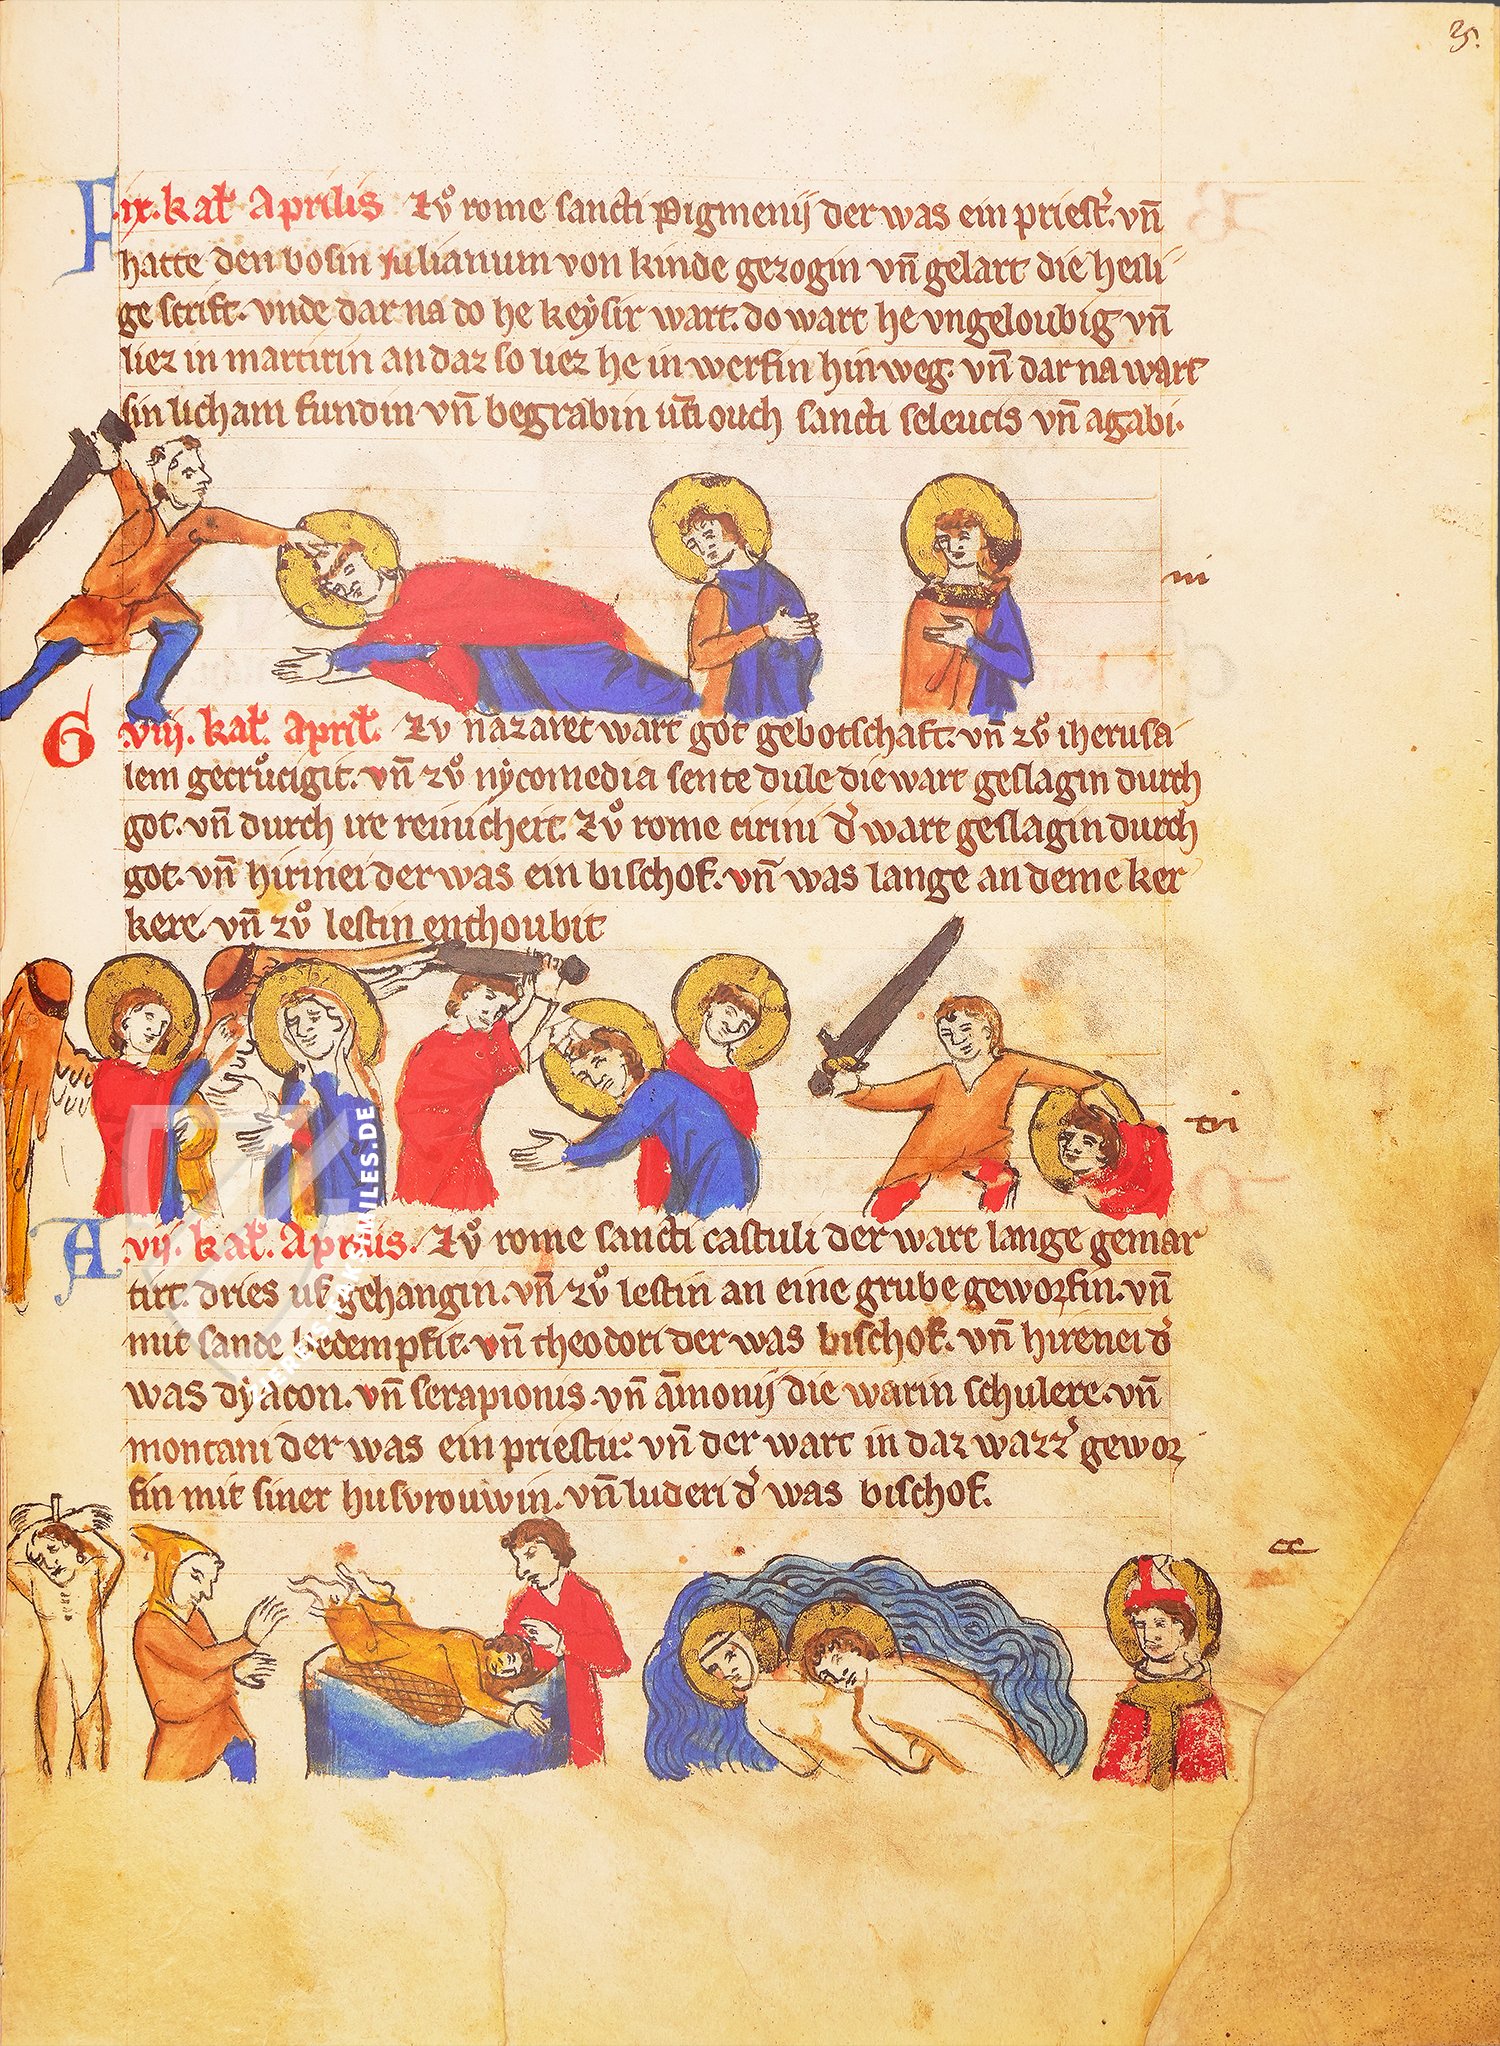 35.
F .ix. kal̄ Aprilis Zů rome sancti Pigmenij der was ein priest̓. vn̄
hatte den bosin iulianum von kinde gezogin vn̄ gelart die heili
ge scrift. vnde dar na do he keẏsir wart. do wart he vngeloubig vn̄
liez in martirin an daz so liez he in werfin hin weg. vn̄ dar na wart
sin licham fundin vn̄ begrabin ouch sancti seleucis vn̄ agabi.
G .viij. kal̄. April̄. Zv nazaret wart got gebotschaft. vn̄ zů iherusa
lem gecrůcigit. vn̄ zů nẏcomedia sente dule die wart geslagin durch
got. vn̄ durch ire reinichert. Zů rome cirini d̓ wart geslagin durch
got. vn̄ hirinei der was ein bischof. vn̄ was lange an deme ker
kere. vn̄ zů lestin enthoubit
A vij. kal̄. Aprilis. Zů rome sancti castuli der wart lange gemar
tirt. dries uf gehangin. vn̄ zů lestin an eine grube geworfin. vn̄
mit sande bedempfit. vn̄ theodori der was bischof. vn̄ hirenei d̓
was dẏacon. vn̄ serapionis. vn̄ am̄onij die warin schulere. vn̄
montani der was ein priestir. vn̄ der wart in daz wazz̓ gewor
fin mit siner husvrouwin. vn̄ luderi d̓ was bischof.
ZIEREIS-FAKSIMILES.DE